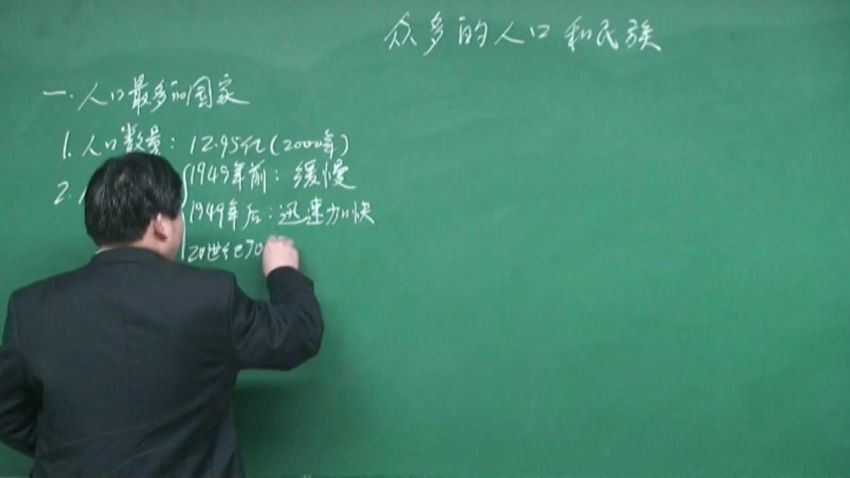 众多的人口和民族
一.人口最多的国家
1.人口数量：12.95亿(2000年)
2.
1949年前：缓慢
1949年后：迅速加快
20世纪70